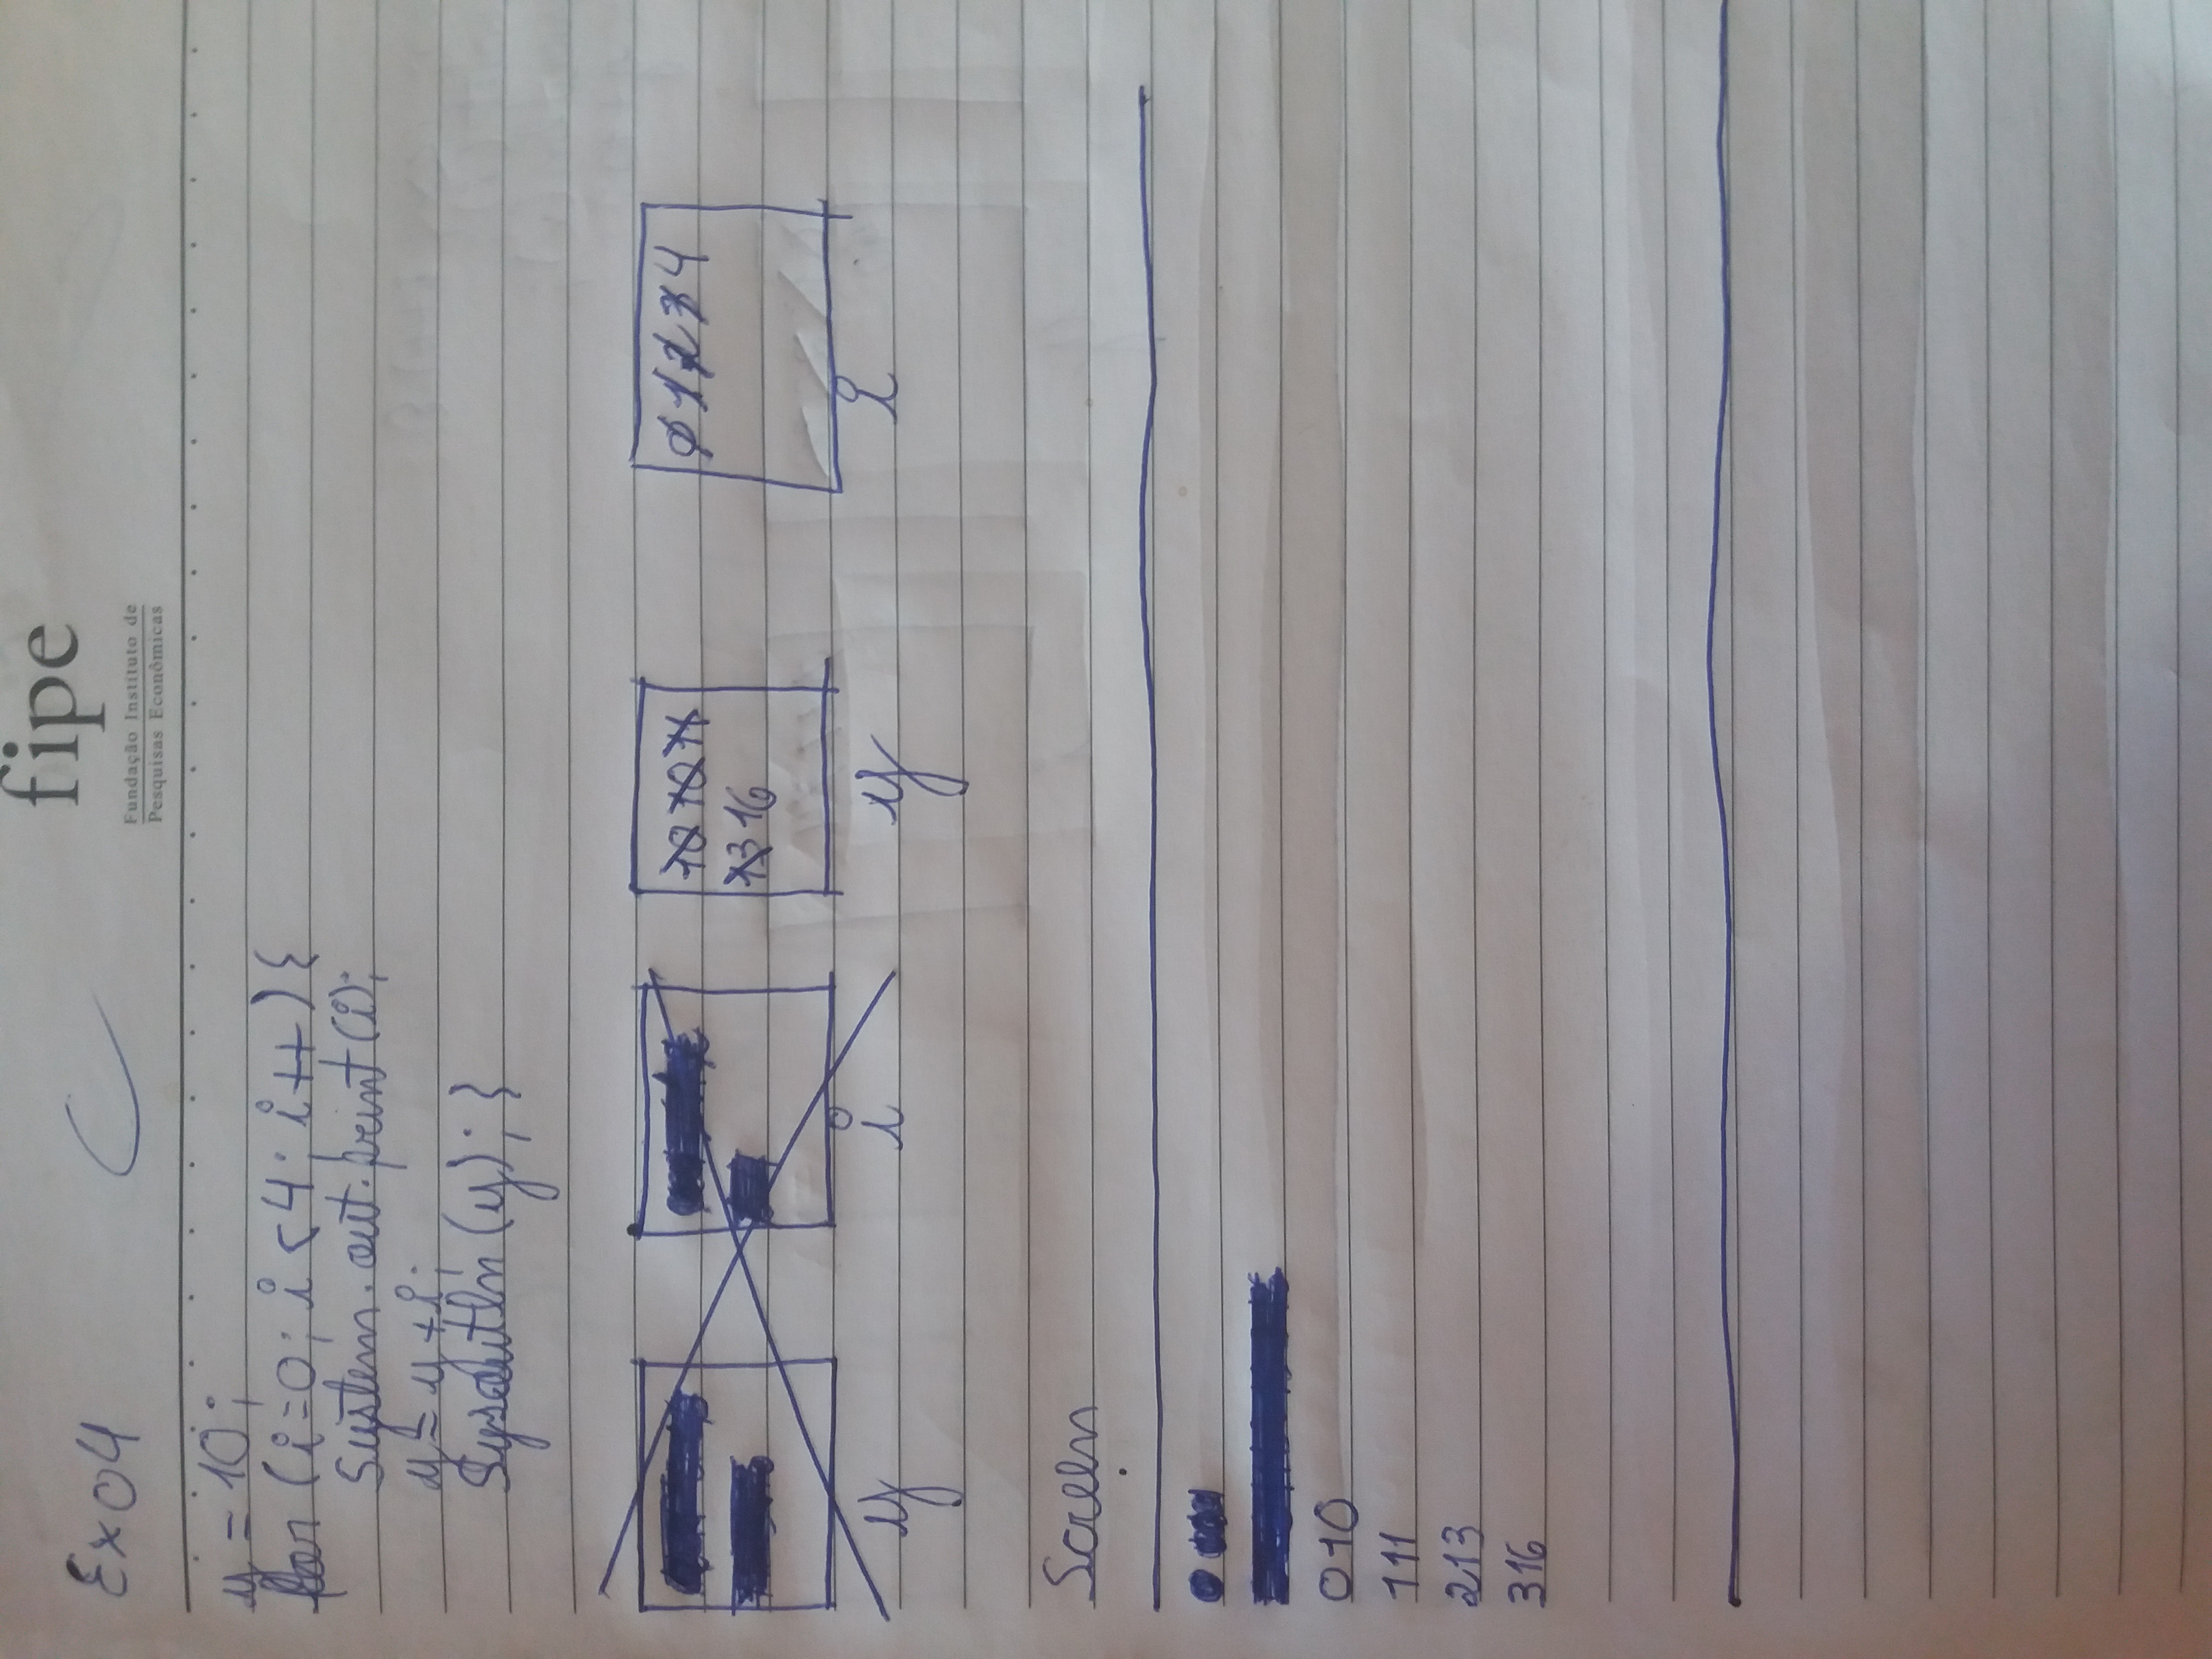 fipe
Fundação Instituto de
Pesquisas Econômicas
Ex04
y = 10;
for (i=0; i<4; i++){
System.out.print(i);
y = y + i;
Sysoutln (y); }
10 10 11
13 16
0 1 2 3 4
y i y i
Screen
010
111
213
316